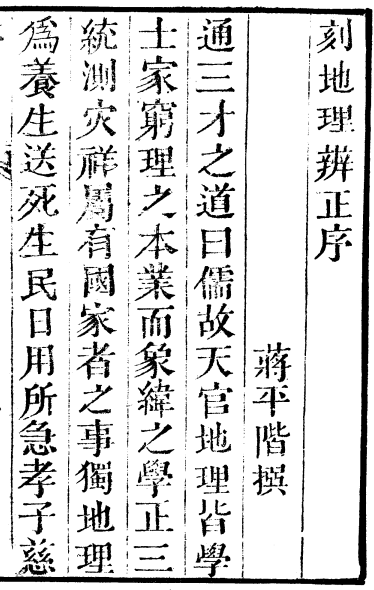 刻地理辨正序
蔣平階撰
通三才之道曰儒故天官地理皆學
士家窮理之本業而象緯之學正三
統測灾祥屬有國家者之事獨地理
爲養生送死生民日用所急孝子慈